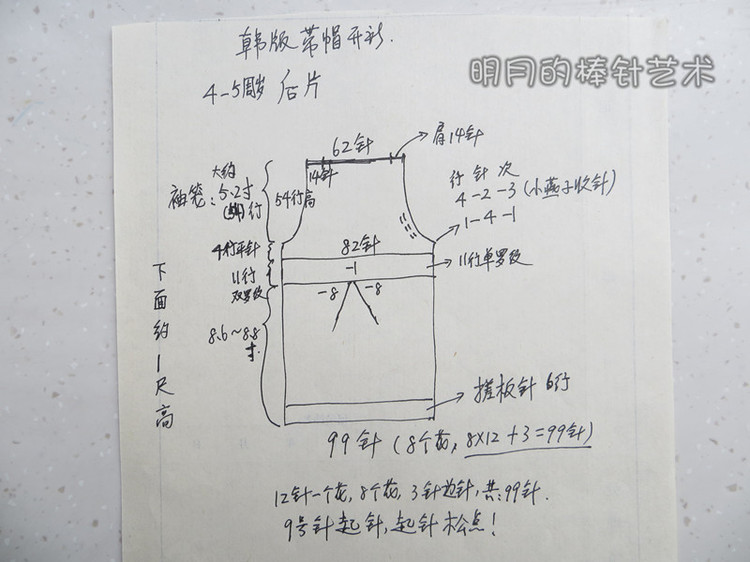 韩版带帽开衫.
明月的棒针艺术
4-5周岁 后片
62针
肩14针
14针
大约
袖笼: 5.2寸
(54)行
54行高
行 针 次
4-2-3 (小燕子收针)
1-4-1
4行平针
82针
11行
双罗纹
-1
11行单罗纹
-8 -8
8.6~8.8
寸.
下面约1尺高
搓板针 6行
99针 (8个花, 8×12+3=99针)
12针一个花, 8个花, 3针边针, 共:99针.
9号针起针, 起针松点!